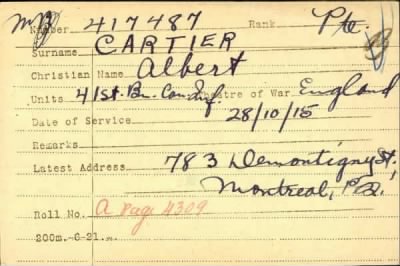 Number 417487 Rank Pte.
Surname CARTIER
Christian Name Albert
Units 41st. Bn. Can. Inf. Theatre of War England
Date of Service 28/10/15
Remarks
Latest Address 783 Demontigny St.,
Montreal, P.Q.
Roll No. A Page 4309
200m.-6-21.